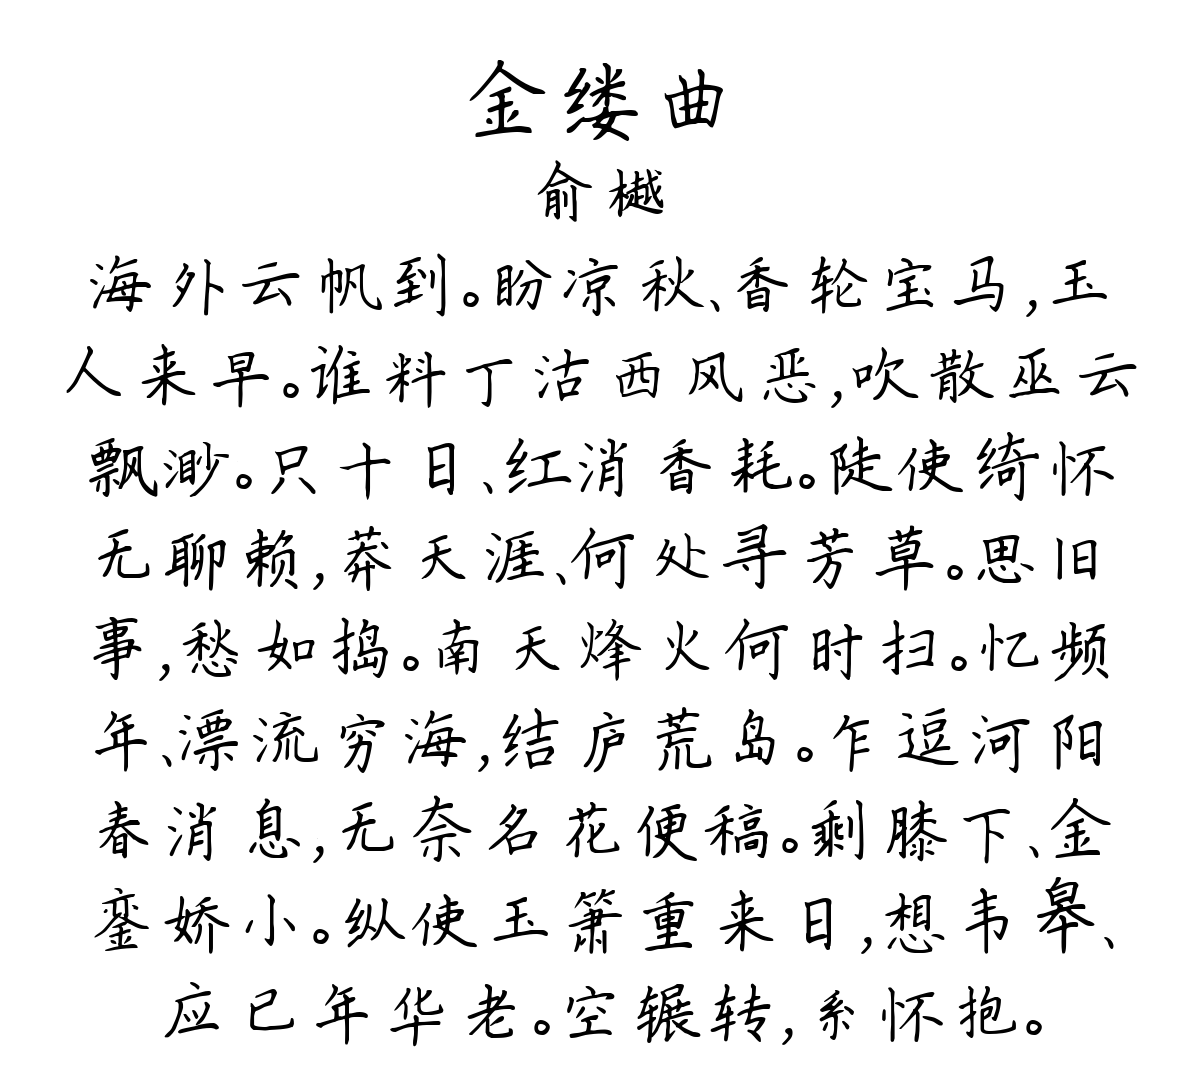 金缕曲
俞樾
海外云帆到。盼凉秋、香轮宝马,玉
人来早。谁料丁沽西风恶,吹散巫云
飘渺。只十日、红消香耗。陡使绮怀
无聊赖,莽天涯、何处寻芳草。思旧
事,愁如捣。南天烽火何时扫。忆频
年、漂流穷海,结庐荒岛。乍逗河阳
春消息,无奈名花便稿。剩膝下、金
銮娇小。纵使玉箫重来日,想韦皋、
应已年华老。空辗转,系怀抱。